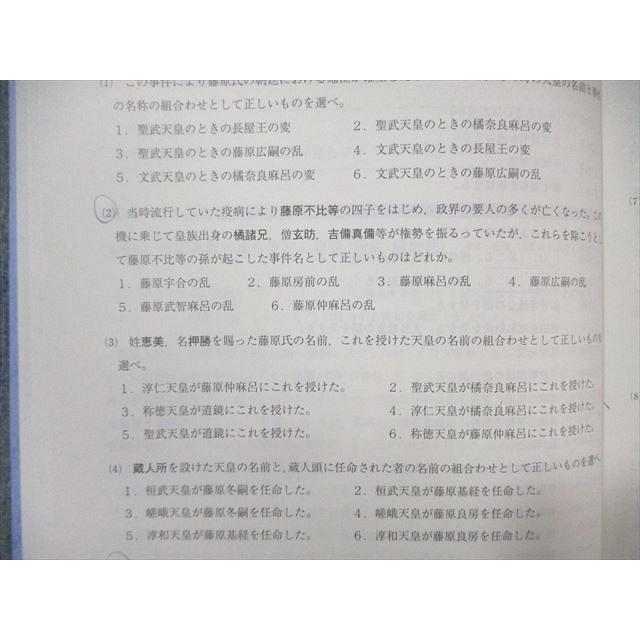 (1) この事件により藤原氏の朝廷における地位が
の名称の組合わせとして正しいものを選べ。
1．聖武天皇のときの長屋王の変 2．聖武天皇のときの橘奈良麻呂の変
3．聖武天皇のときの藤原広嗣の乱 4．文武天皇のときの長屋王の変
5．文武天皇のときの橘奈良麻呂の変 6．文武天皇のときの藤原広嗣の乱
(2) 当時流行していた疫病により藤原不比等の四子をはじめ，政界の要人の多くが亡くなった。この
機に乗じて皇族出身の橘諸兄，僧玄昉，吉備真備等が権勢を振るっていたが，これらを除こうとし
て藤原不比等の孫が起こした事件名として正しいものはどれか。
1．藤原宇合の乱 2．藤原房前の乱 3．藤原麻呂の乱 4．藤原広嗣の乱
5．藤原武智麻呂の乱 6．藤原仲麻呂の乱
(3) 姓恵美，名押勝を賜った藤原氏の名前，これを授けた天皇の名前の組合わせとして正しいものを
選べ。
1．淳仁天皇が藤原仲麻呂にこれを授けた。 2．聖武天皇が橘奈良麻呂にこれを授けた。
3．称徳天皇が道鏡にこれを授けた。 4．淳仁天皇が橘奈良麻呂にこれを授けた。
5．聖武天皇が道鏡にこれを授けた。 6．称徳天皇が藤原仲麻呂にこれを授けた。
(4) 蔵人所を設けた天皇の名前と，蔵人頭に任命された者の名前の組合わせとして正しいものを選べ
1．桓武天皇が藤原冬嗣を任命した。 2．桓武天皇が藤原基経を任命した。
3．嵯峨天皇が藤原冬嗣を任命した。 4．嵯峨天皇が藤原良房を任命した。
5．淳和天皇が藤原基経を任命した。 6．淳和天皇が藤原良房を任命した。
(7)
(8